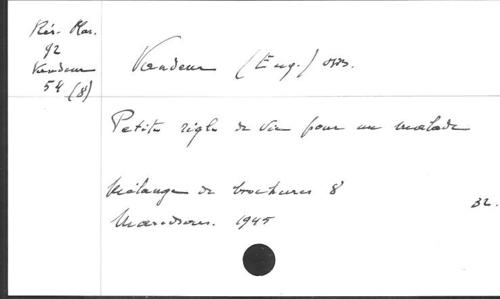 Rés. Mar.
92
Vandeur
54 (8)
Vandeur (Eug.) OSB.
Petite règle de vie pour un malade
Mélange de brochures 8
32.
Maredsous. 1945